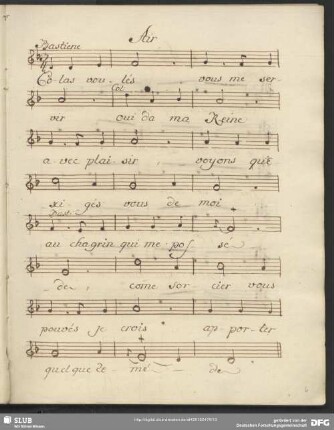 Air
Bastiene
Colas voulés vous me ser-
Col
vir oui da ma Reine
a vec plai-sir, voyons que
xigés vous de moi
Bast
au chagrin qui me pos sé
de, come sor-cier vous
pouvés je crois ap-por-ter
quelque de-mé-de
SLUB
Wir führen Wissen.
gefördert von der
Deutschen Forschungsgemeinschaft
DFG